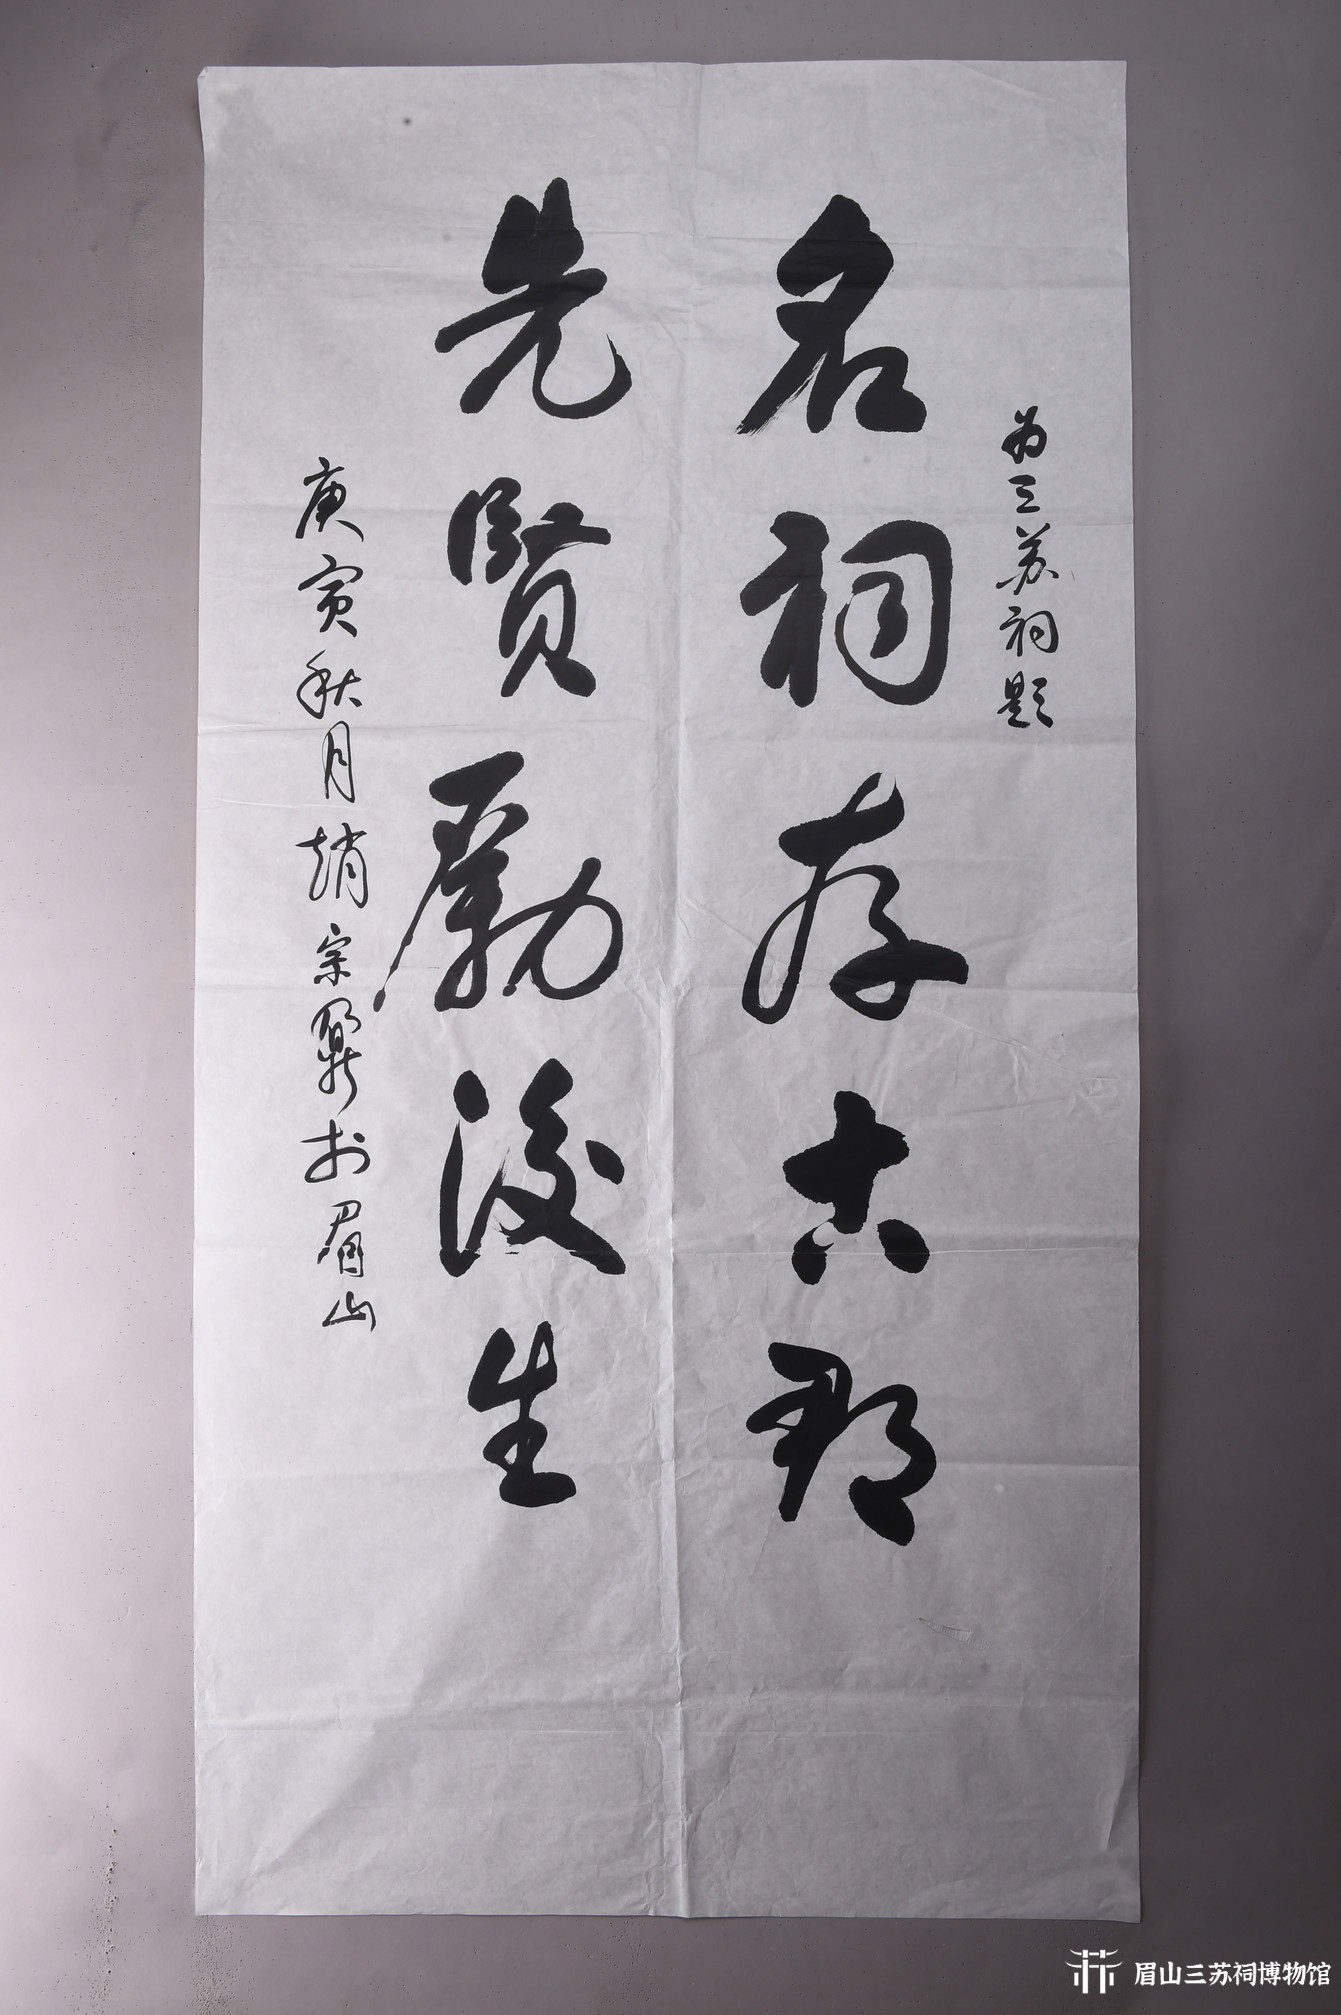 为三苏祠题
名祠存古郡
先贤励後生
庚寅秋月趙宗鼐於眉山
眉山三苏祠博物馆